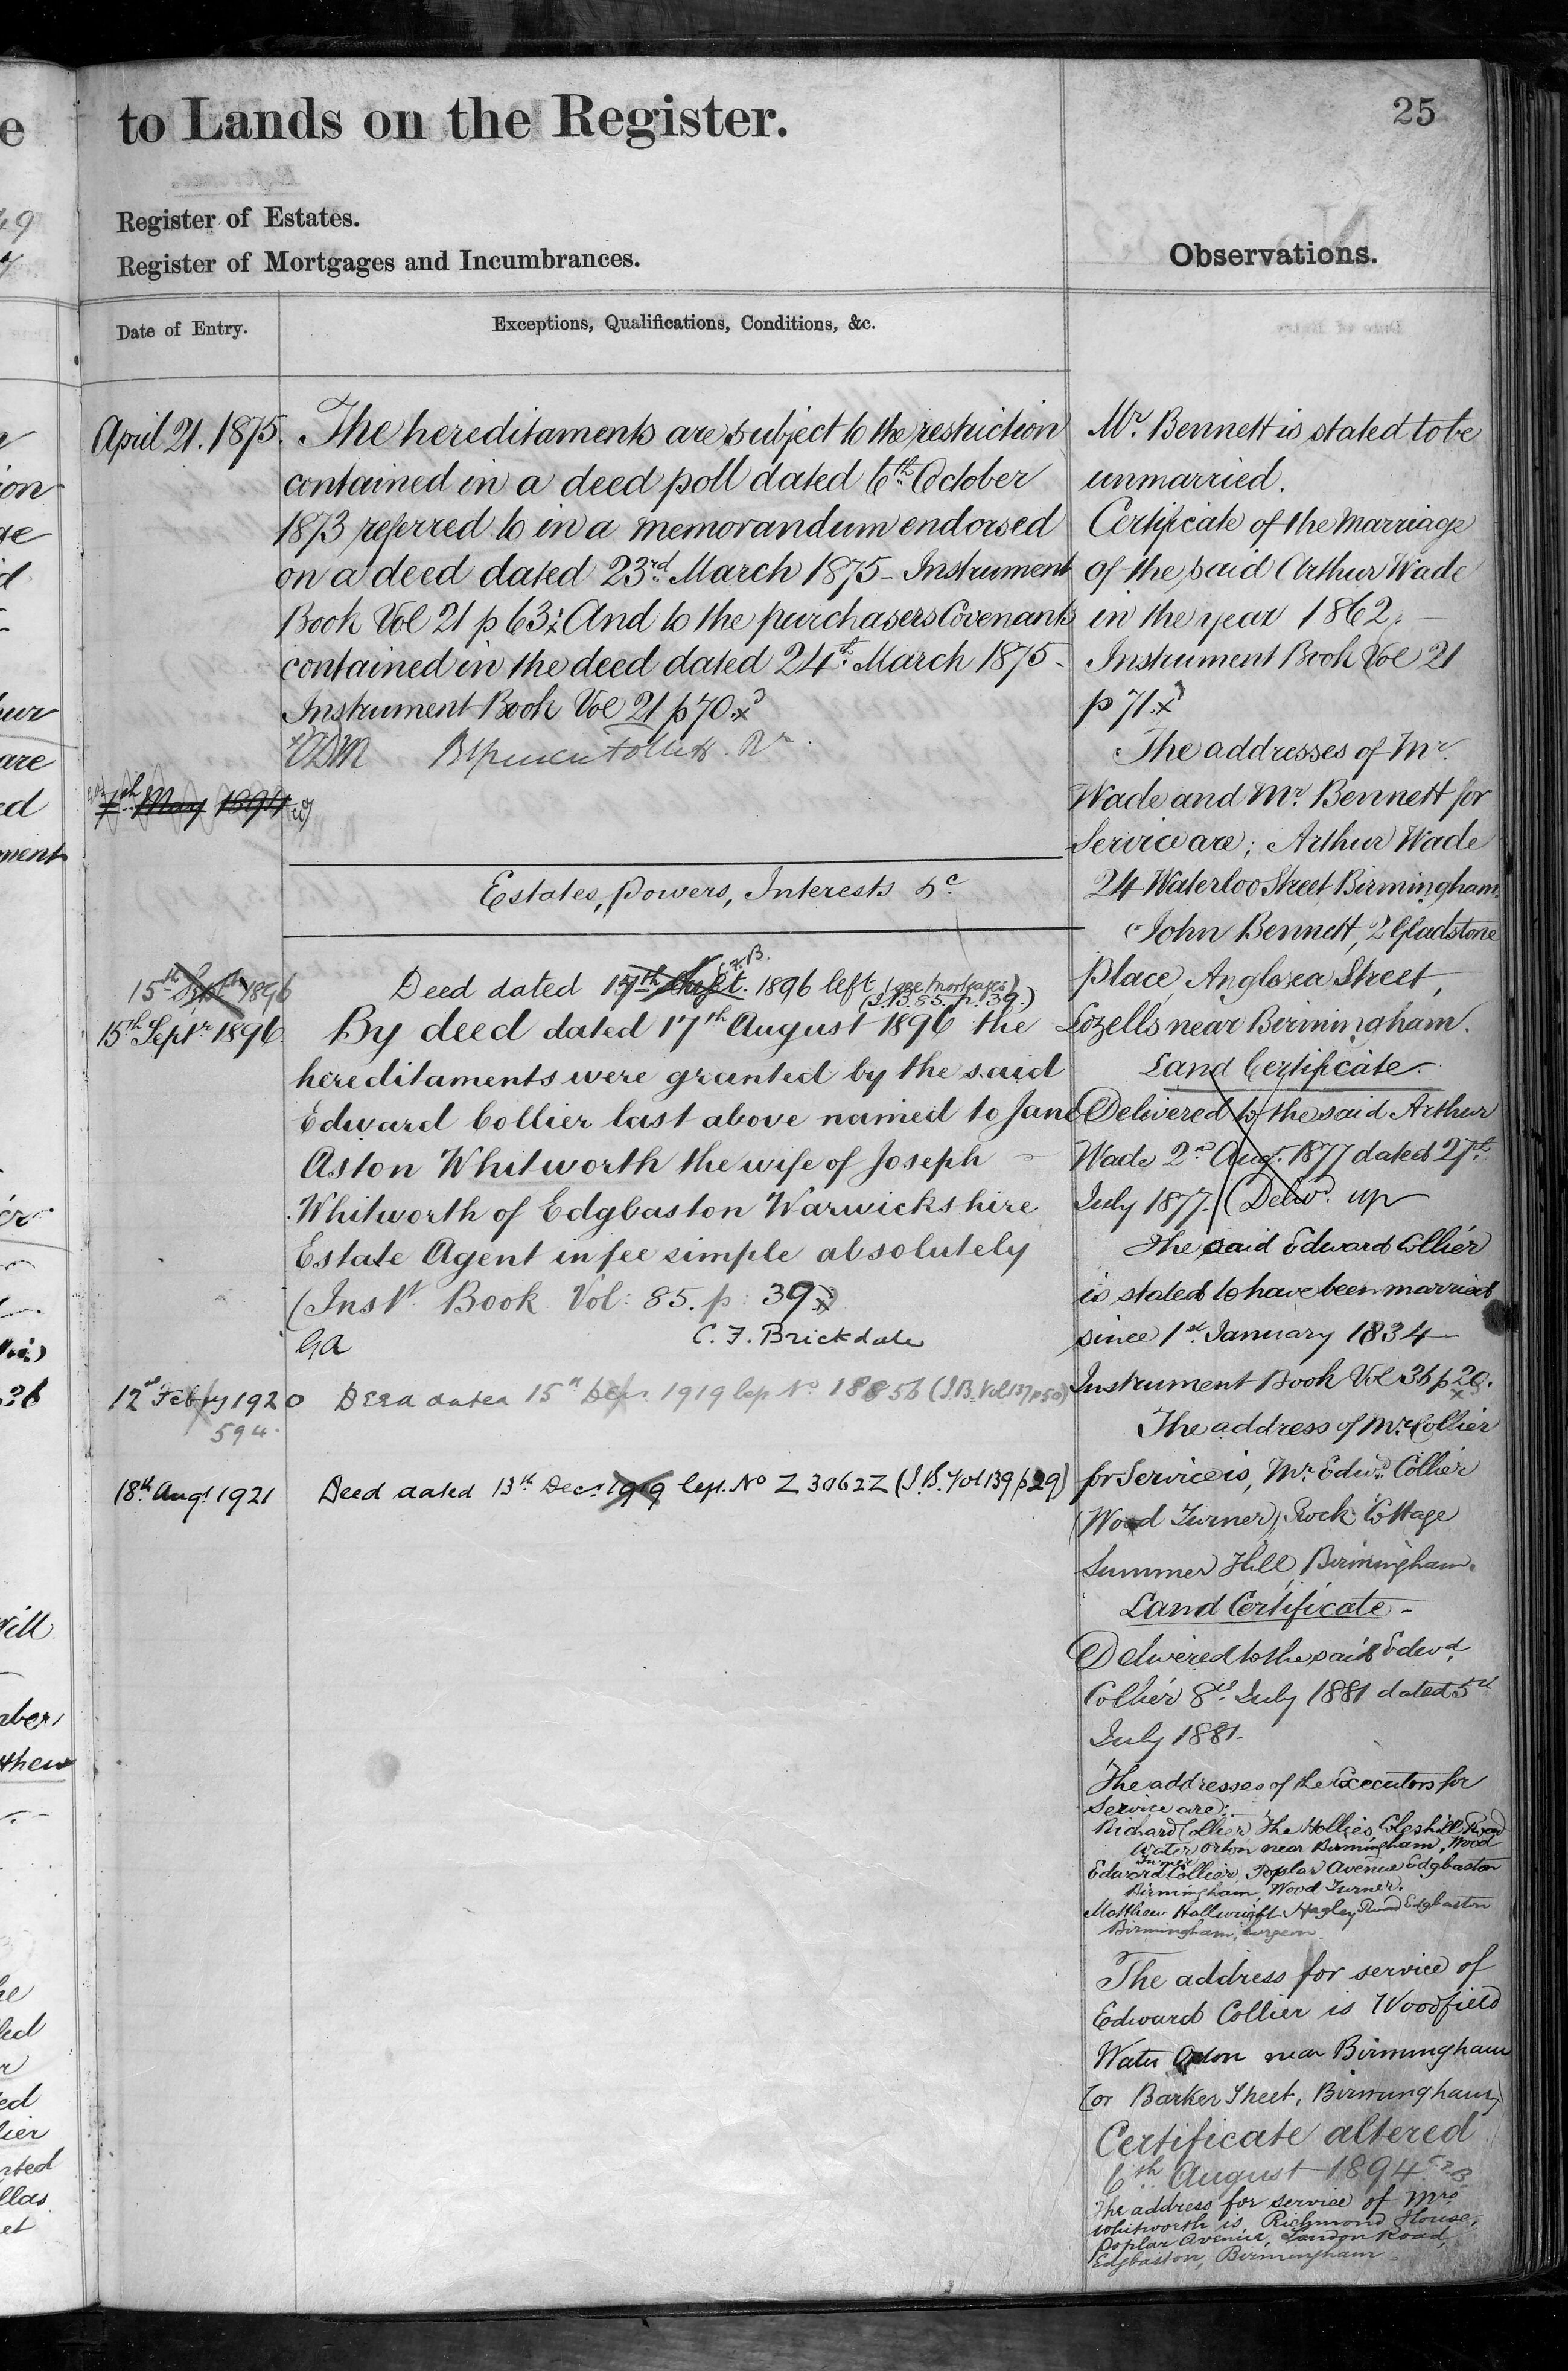 to Lands on the Register.
25
Register of Estates.
Register of Mortgages and Incumbrances.
Observations.
Date of Entry.
Exceptions, Qualifications, Conditions, &c.
April 21. 1875.
The hereditaments are subject to the restriction
contained in a deed poll dated 6th October
1873 referred to in a memorandum endorsed
on a deed dated 23rd March 1875 - Instrument
Book Vol 21 p 63; And to the purchasers Covenants
contained in the deed dated 24th March 1875 -
Instrument Book Vol 21 p 70.
7th May 1894
Estates, powers, Interests &c
15th Septr 1896
Deed dated 17th Augt. 1896 left (see Mortgages)
(I.B. 85. p. 39.)
15th Septr 1896.
By deed dated 17th August 1896 the
hereditaments were granted by the said
Edward Collier last above named to Jane
Aston Whitworth the wife of Joseph
Whitworth of Edgbaston Warwickshire
Estate Agent in fee simple absolutely
(Inst. Book Vol: 85. p: 39)
GA C. F. Brickdale
12th Feby 1920
594.
Deed dated 15th Decr 1919 left No 18856 (I.B. Vol 137 p 50)
18th Augt 1921
Deed dated 13th Decr 1919 left. No Z 3062Z (I.B. Vol 139 p 29)
Mr. Bennett is stated to be
unmarried.
Certificate of the Marriage
of the said Arthur Wade
in the year 1862.
Instrument Book Vol 21
p 71.
The addresses of Mr.
Wade and Mr. Bennett for
Service are; Arthur Wade
24 Waterloo Street Birmingham.
John Bennett, 2 Gladstone
Place, Anglosea Street,
Lozells near Birmingham.
Land Certificate.
Delivered to the said Arthur
Wade 2nd Aug. 1877 dated 27th
July 1877. (Delivd. up
The said Edward Collier
is stated to have been married
since 1st. January 1834
Instrument Book Vol 36 p 20.
The address of Mr. Collier
for Service is, Mr. Edwd. Collier
(Wood Turner), Rock Cottage
Summer Hill, Birmingham.
Land Certificate -
Delivered to the said Edwd.
Collier 8th July 1881 dated 5th
July 1881.
The addresses of the Executors for
Service are:-
Richard Collier, The Hollies, Coleshill Road
Water Orton near Birmingham, Wood
Turner
Edward Collier, Poplar Avenue Edgbaston
Birmingham, Wood Turner.
Matthew Hallwright Hagley Road Edgbaston
Birmingham, Surgeon.
The address for service of
Edward Collier is Woodfield
Water Orton near Birmingham
(or Barker Street, Birmingham)
Certificate altered
6th August 1894 CFB
The address for service of Mrs
Whitworth is, Richmond House,
Poplar Avenue, London Road,
Edgbaston, Birmingham